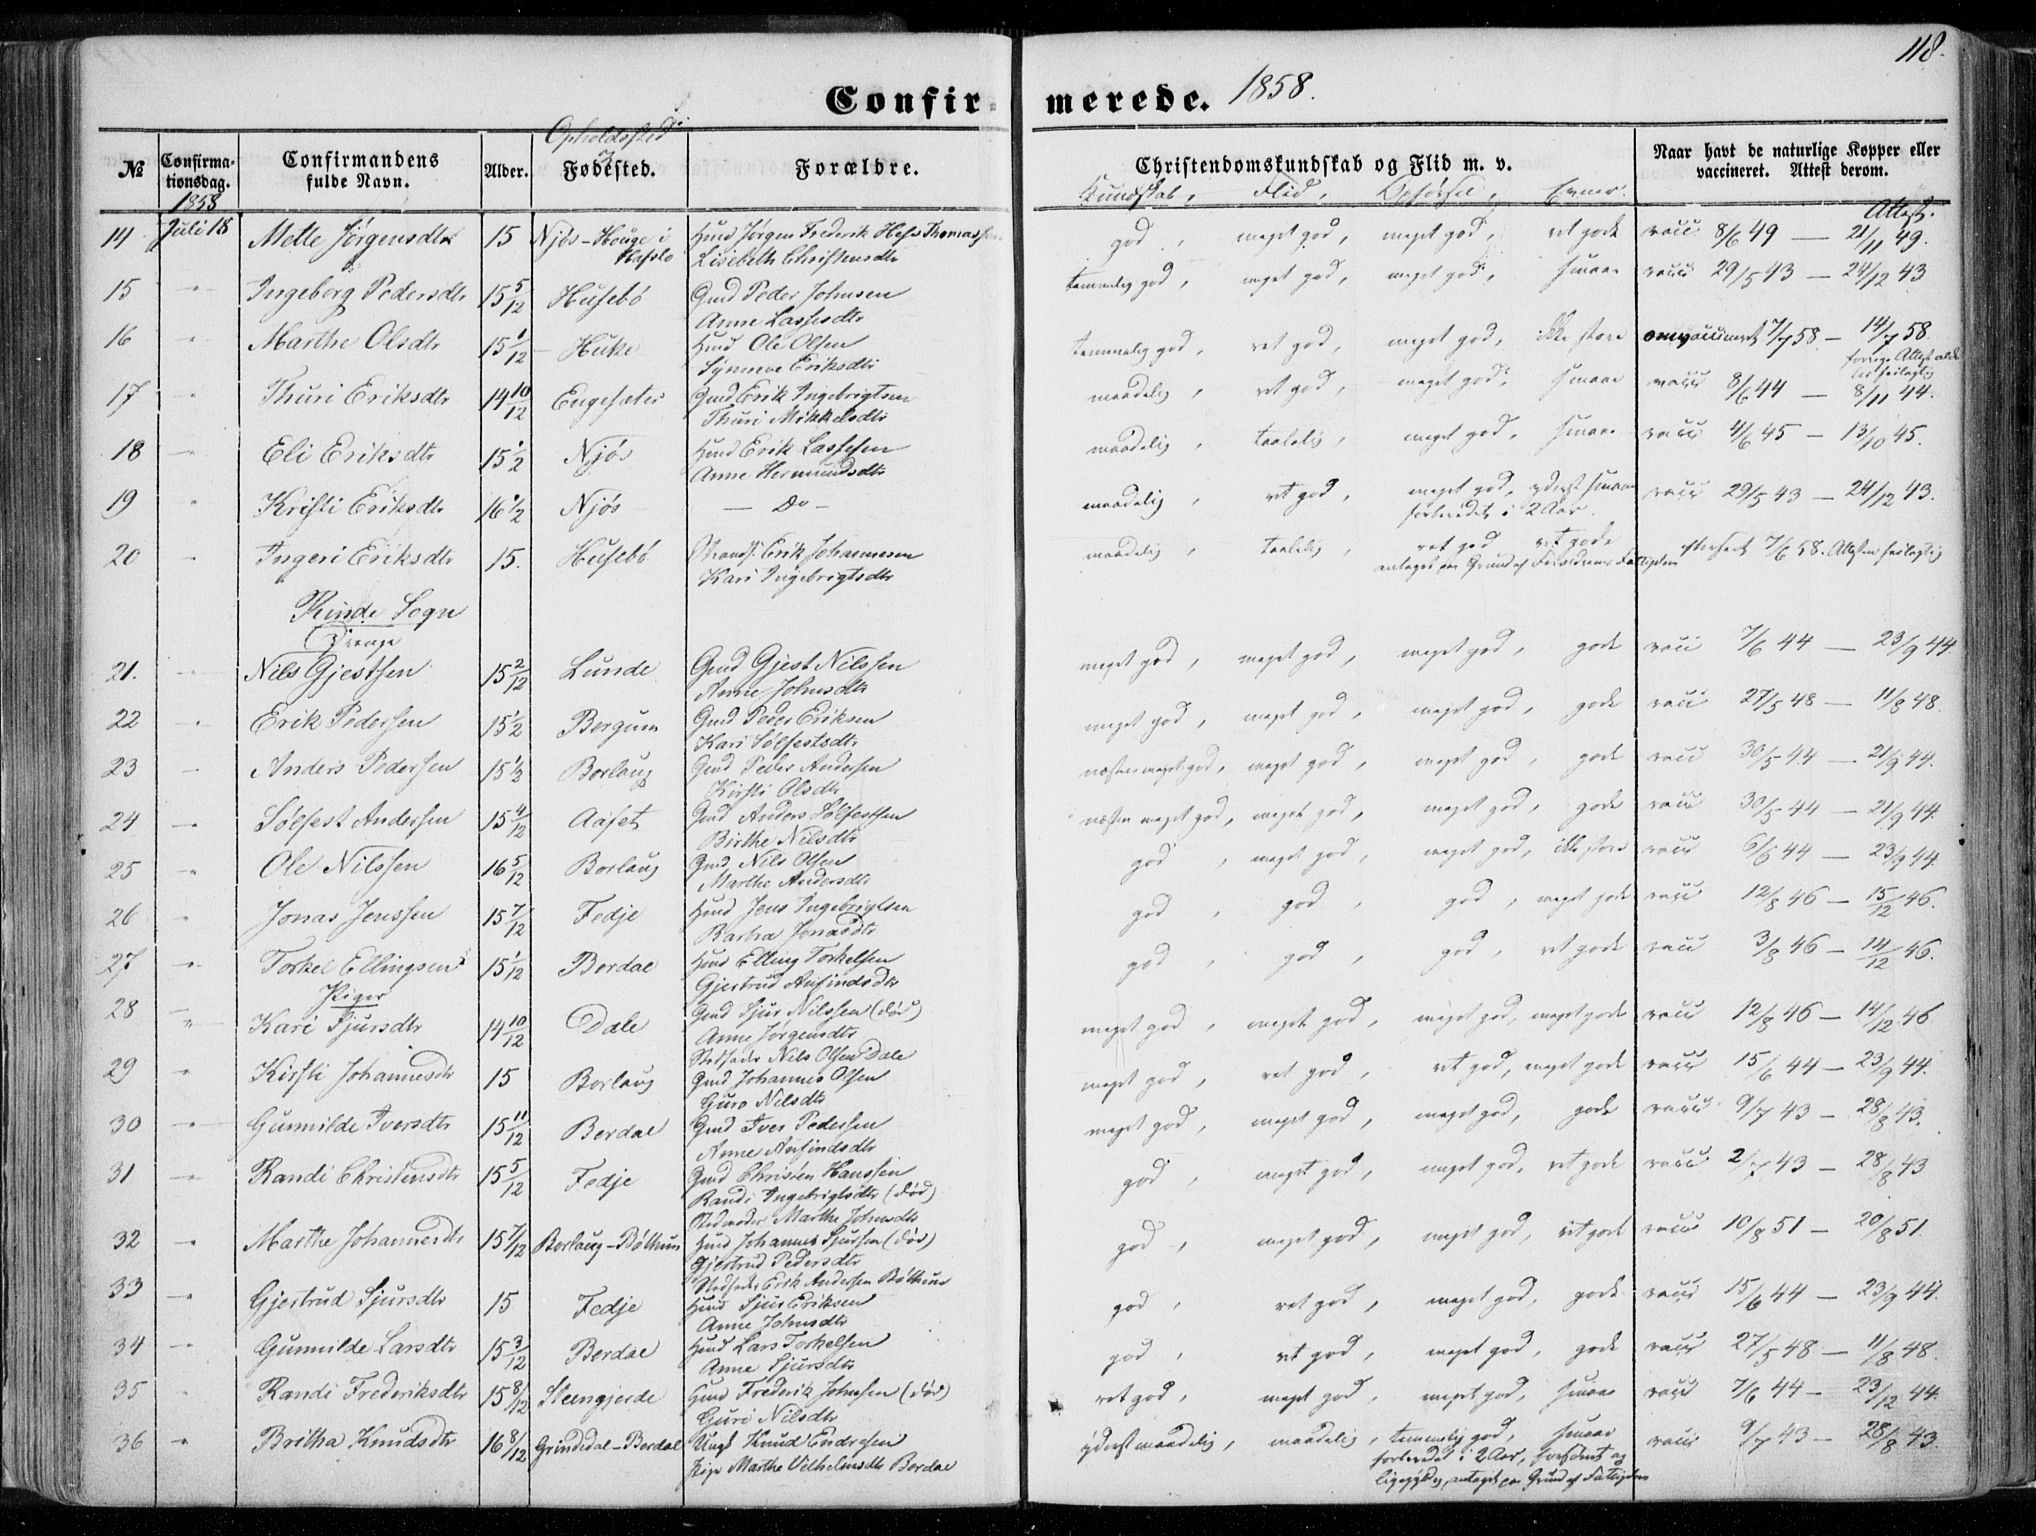 118.
Confirmerede. 1858.
Opholdssted &
№ Confirmationsdag. Confirmandens fulde Navn. Alder. Fødested. Forældre. Christendomskundskab og Flid m. v. Naar havt de naturlige Kopper eller vaccineret. Attest derom.
1858 Kundskab, Flid, Opførsel, Evner. Attest.
14 Juli 18 Mette Jørgensdtr 15 Njøs-Houge i Hafslo Huus Jørgen Frederik Hess Thomassen god, meget god, meget god, ret gode vacc 8/6 49 — 21/11 49.
Lisebeth Christensdtr
15 " Ingeborg Pedersdtr 15 5/12 Husebø Gmd Peder Johnsen temmelig god, meget god, meget god, smaae vacc 29/5 43 — 24/12 43
Anne Lassesdtr
16 " Marthe Olsdtr 15 1/12 Huke Huus Ole Olsen temmelig god, ret god, meget god, ikke store omvaccineret 7/7 58 — 14/7 58.
Synneve Eriksdtr
17 " Thuri Eriksdtr 14 10/12 Engesæter Gmd Erik Ingebrigtsen maadelig, ret god, meget god, smaae vacc 8/6 44 — 8/11 44.
Thuri Mikkelsdtr
18 " Eli Eriksdtr 15 1/2 Njøs Huus Erik Lassesen maadelig, taalelig, meget god, smaae vacc 4/6 45 — 13/10 45.
Anne Hermundsdtr
19 " Kristi Eriksdtr 16 1/2 Njøs — Do — maadelig, ret god, meget god, yderst smaae vacc 29/5 43 — 24/12 43.
forberedet i 2 Aar.
20 " Ingeri Eriksdtr 15. Husebø Strands. Erik Johannesen maadelig, taalelig, ret god ret gode efterseet 7/6 58. Attesten feilagtig
Kari Ingebrigtsdtr antaget paa Grund af Forældrenes Fattigdom
Rinde Sogn
Drenge
21. Nils Gjestsen 15 2/12 Lunde Gmd Gjest Nilssen meget god, meget god, meget god, gode vacc 7/6 44 — 23/9 44.
Anne Johnsdtr
22 Erik Pedersen 15 1/2 Bergum Gmd Peder Eriksen meget god, meget god, meget god, gode vacc 27/5 48 — 11/8 48.
Kari Sølfestsdtr
23 Anders Pedersen 15 1/2 Borlaug Gmd Peder Andersen næsten meget god, meget god, meget god, gode vacc 30/5 44 — 21/9 44.
Kirsti Olsdtr
24 Sølfest Andersen 15 4/12 Aafet Gmd Anders Sølfestsen næsten meget god, meget god, meget god, gode vacc 30/5 44 — 21/9 44.
Birthe Nilsdtr
25 " Ole Nilssen 16 5/12 Borlaug Gmd Nils Olsen god, meget god, meget god, ikke store vacc 6/6 44 — 23/9 44
Marthe Andersdtr
26 " Jonas Jenssen 15 7/12 Fedje Huus Jens Ingebrigtsen god, god, god, meget gode vacc 12/8 46 — 15/12 46.
Barbra Jonasdtr
27 " Torkel Ellingsen 15 1/12 Berdal Huus Elling Torkelsen god, god, god, ret gode vacc 3/8 46 — 14/12 46.
Gjertrud Anfindsdtr
Piger
28 " Kari Sjursdtr 14 10/12 Dale Gmd Sjur Nilssen (død) meget god, meget god, meget god, meget gode vacc 12/8 46 — 14/12 46
Anne Jørgensdtr
Stedfader Nils Olsen Dale
29 " Kirsti Johannesdtr 15 Borlaug Gmd Johannes Olsen meget god, ret god, ret god, meget gode vacc 15/6 44 — 23/9 44.
Guro Nilsdtr
30 Gunnilde Iversdtr 15 11/12 Berdal Gmd Iver Pedersen meget god, meget god, meget god, gode vacc 9/7 43 — 28/8 43.
Anne Anfindsdtr
31 Randi Christensdtr 15 5/12 Fedje Gmd Christen Hanssen god, meget god, meget god, ret gode vacc 2/7 43 — 28/8 43
Randi Ingebrigtsdtr (død)
Stedmoder Marthe Johnsdtr
32 " Marthe Johannesdtr 15 7/12 Borlaug-Bøthun Huus Johannes Sjursen (død) god, meget god, meget god, ret gode vacc 10/8 51 — 20/8 51.
Gjertrud Pedersdtr
Stedfader Erik Andersen Bøthun
33 " Gjertrud Sjursdtr 15 Fedje Huus Sjur Eriksen god, ret god, meget god, gode vacc 15/6 44 — 23/9 44.
Anne Johnsdtr
34 " Gunnilde Larsdtr 15 3/12 Berdal Huus Lars Torkelsen god, ret god, meget god, gode vacc 27/5 48 — 11/8 48.
Anne Sjursdtr
35 " Randi Frederiksdtr 15 8/12 Steengjerde Huus Frederik Johnsen (død) ret god, meget god, meget god, smaae vacc 7/6 44 — 23/12 44.
Guri Nilsdtr
36 " Britha Knudsdtr 16 8/12 Grindedal-Berdal Ungk Knud Endresen yderst maadelig, maadelig, temmelig god, smaae vacc 9/7 43 — 28/8 43.
Pige Marthe Vilhelmsdtr Berdal forberedet i 2 Aar, forsømt og
ligegyldig, antaget paa Grund af Fattigdom